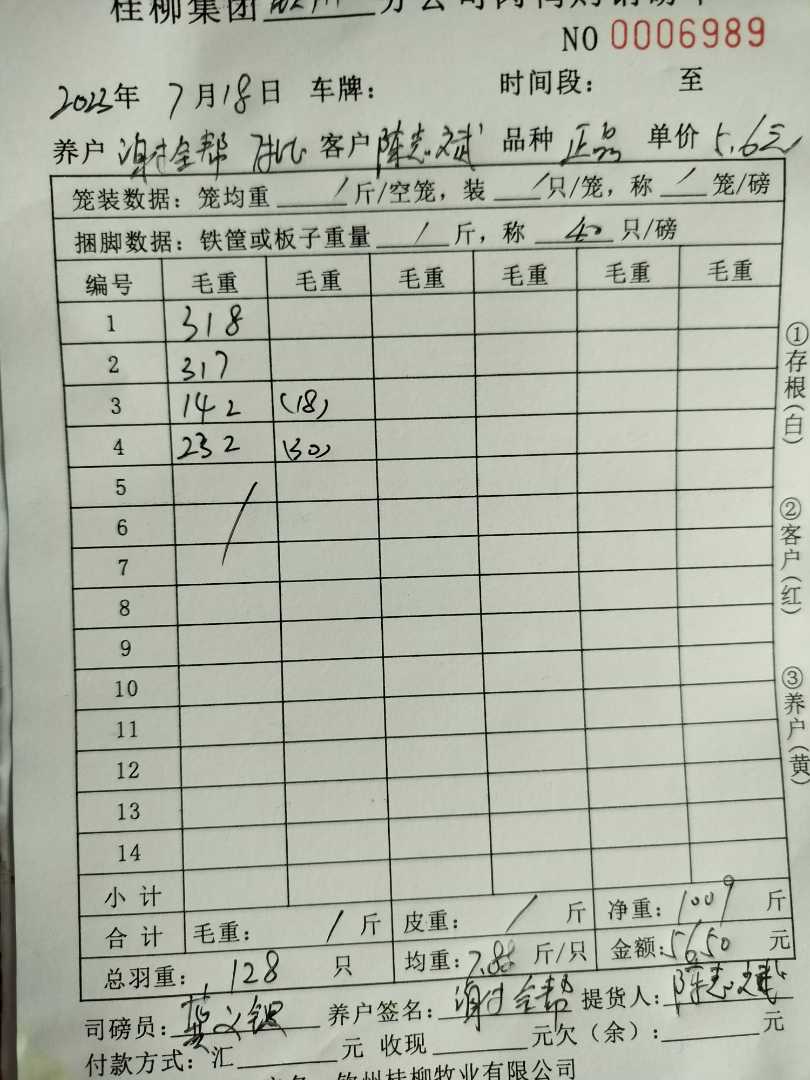 桂柳集团 分公司肉鸭购销
NO 0006989
2023年 7月18日 车牌： 时间段： 至
养户 客户 陈志斌 品种 正品 单价 5.6元
笼装数据：笼均重 / 斤/空笼，装 / 只/笼，称 / 笼/磅
捆脚数据：铁筐或板子重量 / 斤，称 40 只/磅
编号 毛重 毛重 毛重 毛重 毛重 毛重
1 318
2 317
3 142 (18)
4 232 (30)
5 /
6
7
8
9
10
11
12
13
14
小计
合计 毛重： / 斤 皮重： / 斤 净重：1009 斤
总羽重： 128 只 均重：7.88 斤/只 金额：5650 元
司磅员： 养户签名： 提货人：陈志斌
付款方式：汇 元 收现 元欠（余）： 元
钦州桂柳牧业有限公司
①存根（白）
②客户（红）
③养户（黄）